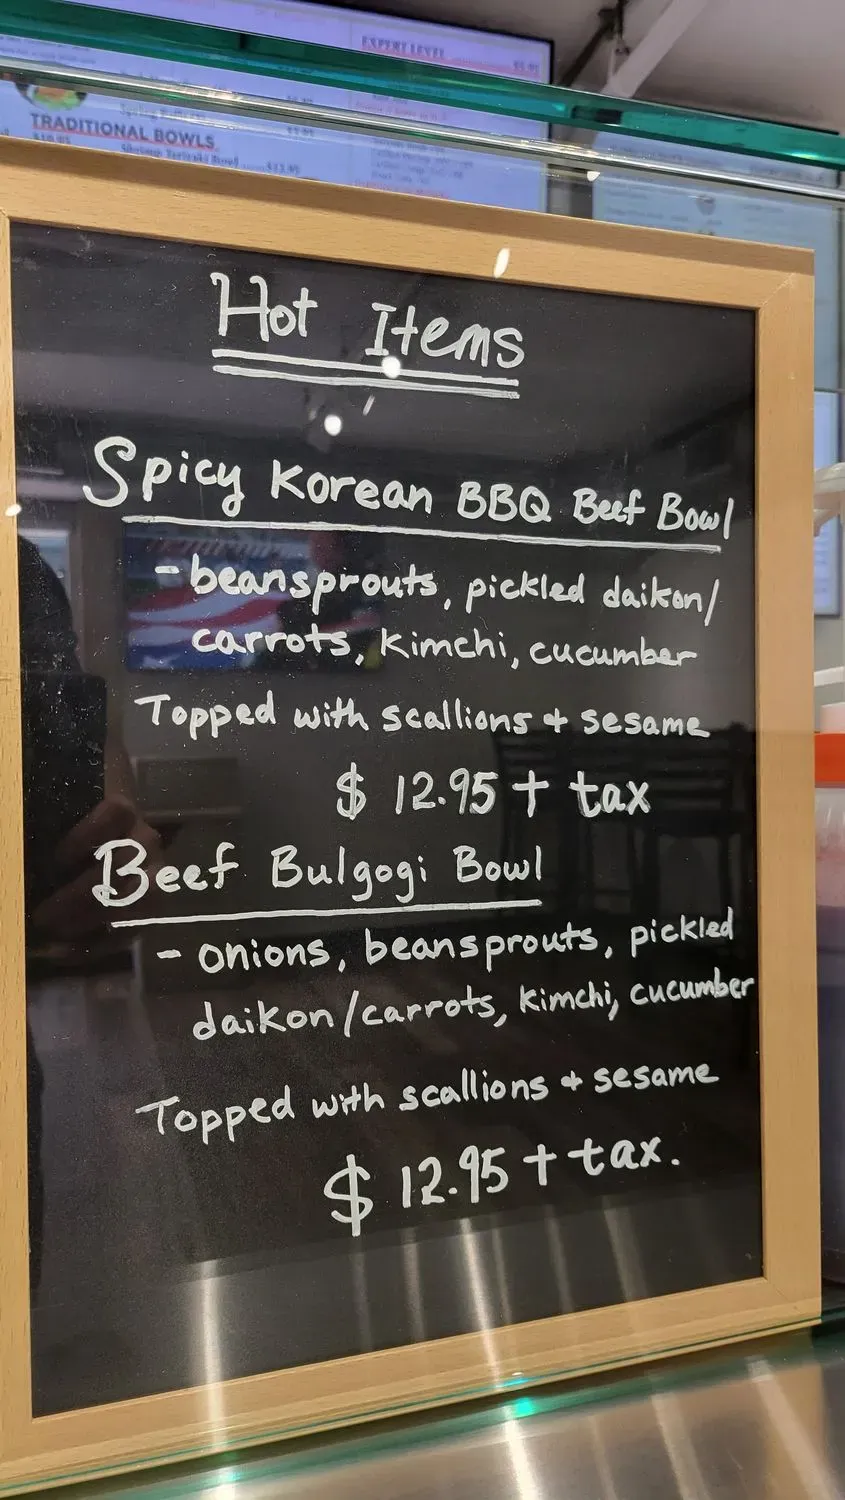 EXPERT LEVEL
$5.95
TRADITIONAL BOWLS
Shrimp Teriyaki Bowl $13.95
Hot Items
Spicy Korean BBQ Beef Bowl
- beansprouts, pickled daikon/
carrots, kimchi, cucumber
Topped with scallions + sesame
$12.95 + tax
Beef Bulgogi Bowl
- onions, beansprouts, pickled
daikon/carrots, kimchi, cucumber
Topped with scallions + sesame
$12.95 + tax.